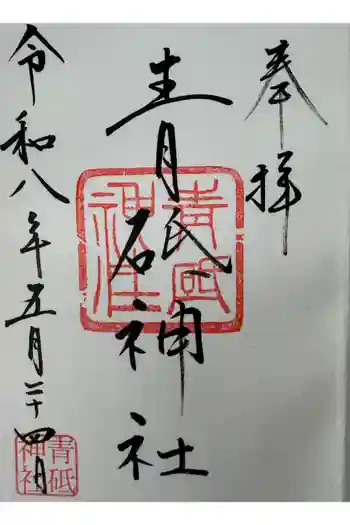 奉拝
青砥神社
青砥神社
令和八年五月二十四日
青砥神社